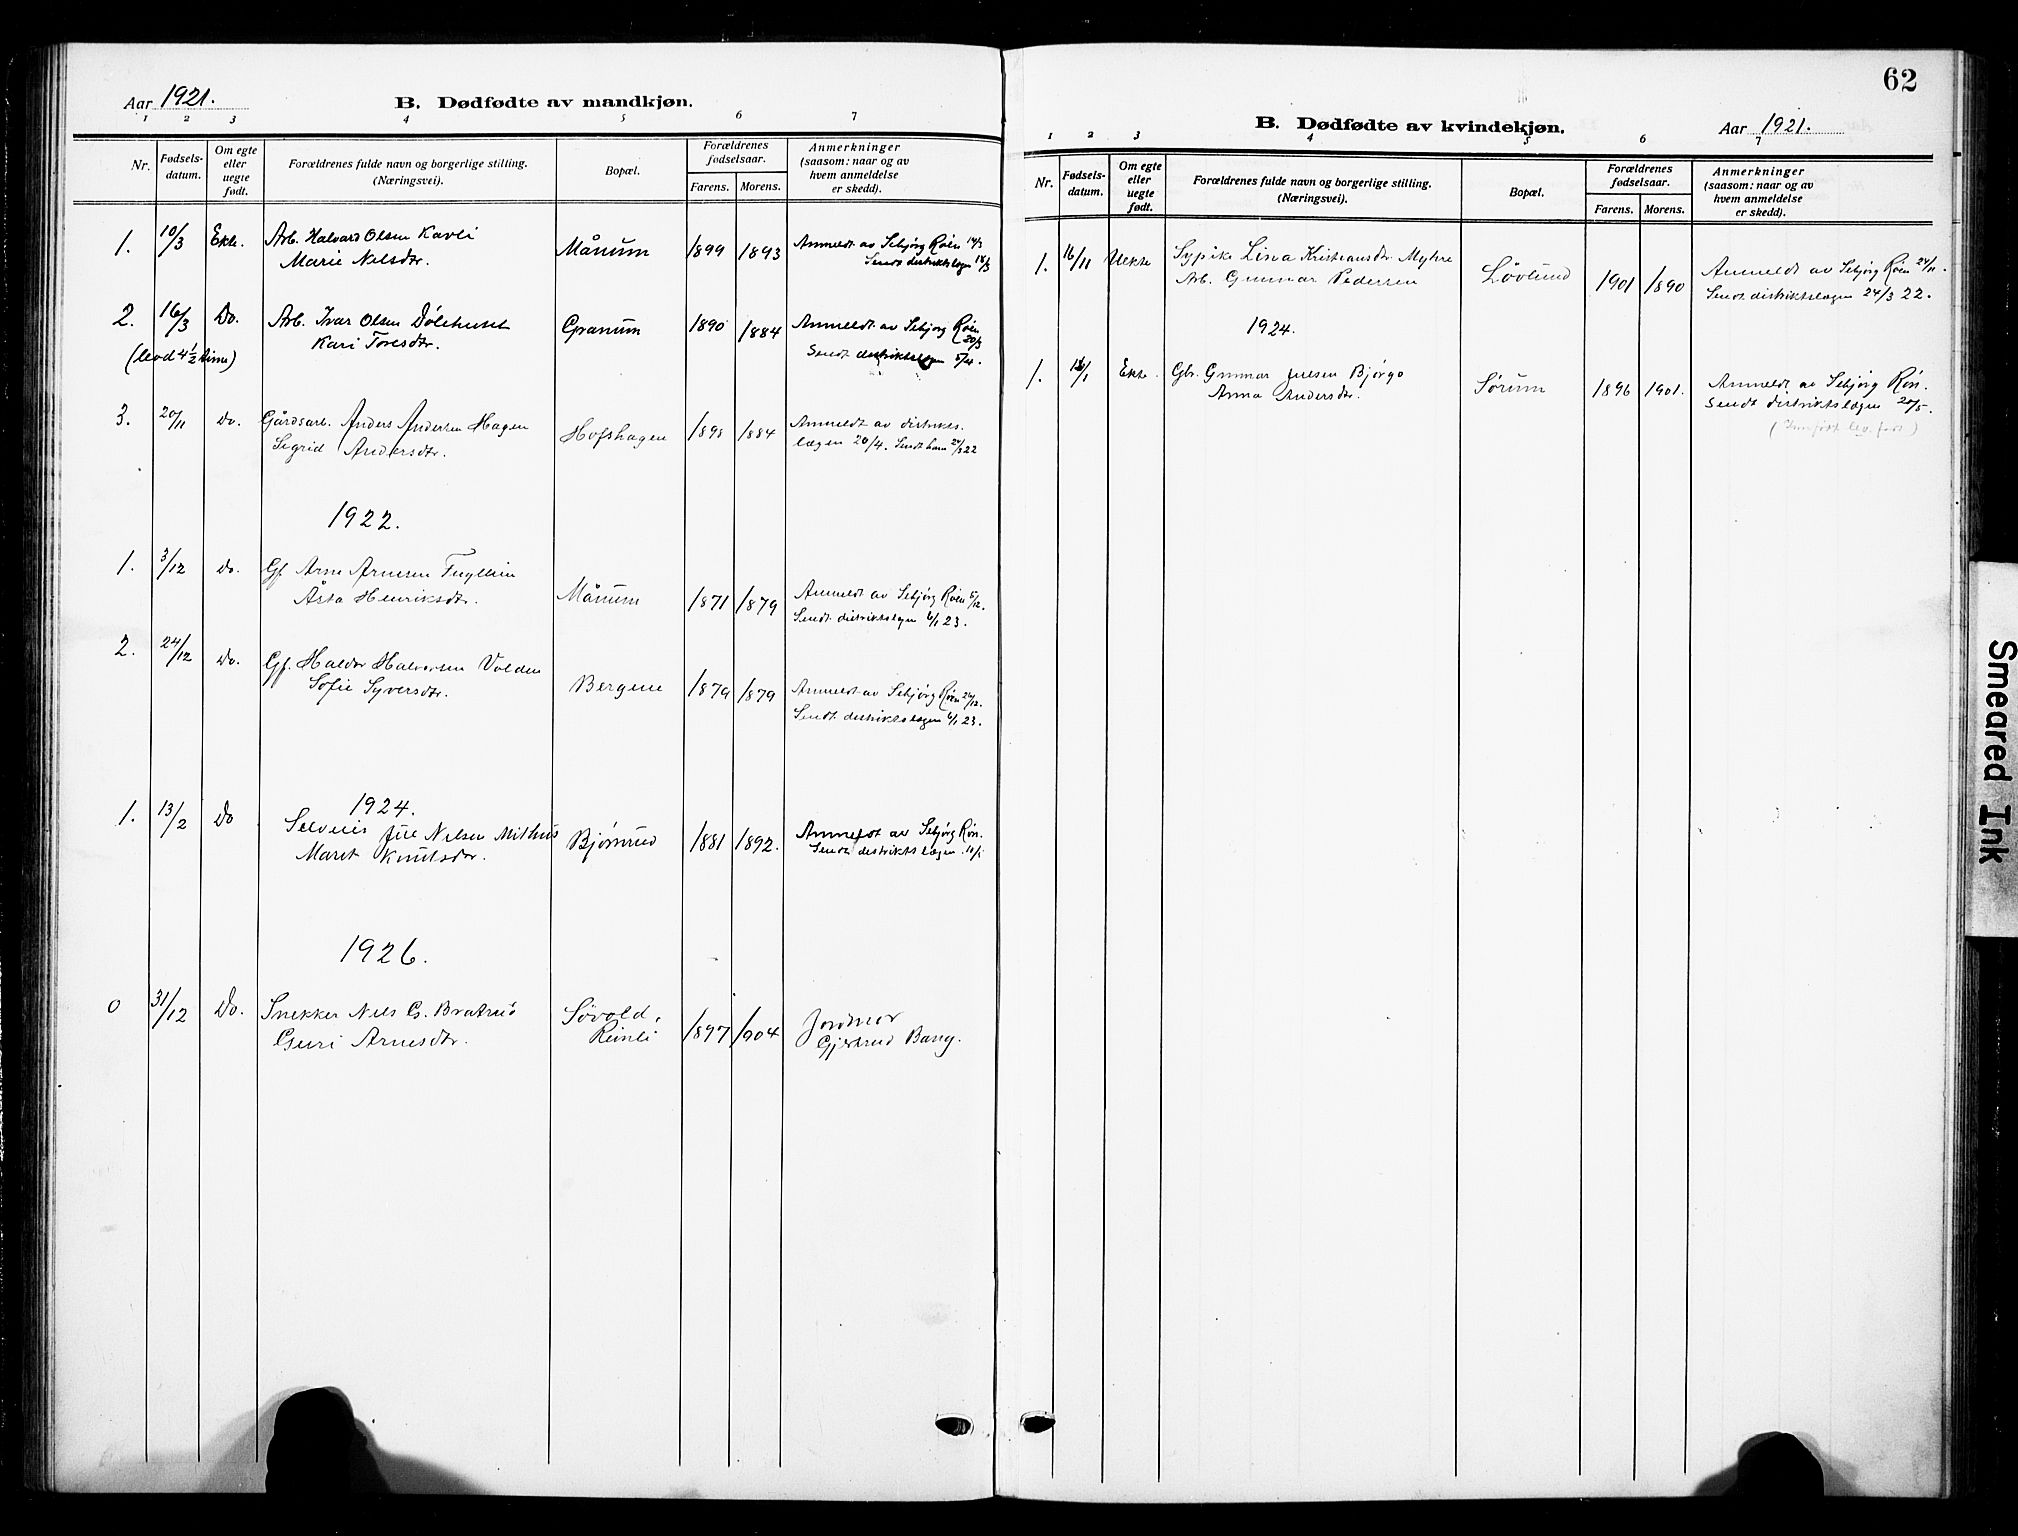 Aar 1921.
B. Dødfødte av mandkjøn.
1 2 3 4 5 6 7
Nr.
Fødsels-
datum.
Om egte
eller
uegte
født.
Forældrenes fulde navn og borgerlige stilling.
(Næringsvei).
Bopæl.
Forældrenes
fødselsaar.
Farens. Morens.
Anmerkninger
(saasom: naar og av
hvem anmeldelse
er skedd).
1. 10/3 Ekte. Arb. Halvard Olsen Kavli Månum 1899 1893 Anmeldt av Sebjörg Röen 14/3
Marie Nelsdtr. Sendt distriktslægen 18/3
2. 16/3 Do. Arb. Ivar Olsen Dölehuset Granum 1890 1884 Anmeldt av Sebjörg Röen
20/3
Kari Toresdtr.
(levd 4 1/2 time) Sendt distriktslægen 5/4.
3. 20/11 Do. Gårdsarb. Anders Andersen Hagen Hofshagen 1884 Anmeldt av distrikts-
Sigrid Andersdtr. lægen 20/4. Sendt ham 24/3 22
1922.
1. 3/12 Do. Gf. Arne Arnesen
Åsta Henriksdtr. Månum 1871 1879 Anmeldt av Sebjörg Röen 5/12.
Sendt distriktslægen 6/1 23.
2. 24/12 Do. Gf. Haldor Halvorsen Volden
Sofie Syversdtr. Bergene 1879 1879 Anmeldt av Sebjörg Röen 26/12.
Sendt distriktslægen 6/1 23.
1924.
1. 13/2 Do Selveier Nilsen Bjørnrud 1881 1892. Anmeldt av Sebjörg Rön.
Marit Knutsdtr. Sendt distriktslægen
1926.
0 31/12 Do. Snekker Nils G. Bratrud Sövold, 1897 1904 Jordmor
Guri Arnesdtr. Reinli Gjertrud Bang.
62
B. Dødfødte av kvindekjøn.
Aar 1921.
1 2 3 4 5 6 7
Nr.
Fødsels-
datum.
Om egte
eller
uegte
født.
Forældrenes fulde navn og borgerlige stilling.
(Næringsvei).
Bopæl.
Forældrenes
fødselsaar.
Farens. Morens.
Anmerkninger
(saasom: naar og av
hvem anmeldelse
er skedd).
1. 16/11 Uekte Sypike Lina Kristiansdtr Myhre Lövlund 1901 1890 Anmeldt av Sebjörg Röen 24/11.
Arb. Gunnar Pedersen Sendt distriktslægen 24/3 22.
1924.
1. Ekte. Gbr. Gunnar Bjørgo Sørum 1896 1901. Anmeldt av Sebjörg Rön.
Anna Andersdtr. Sendt distriktslægen 20/5.
Smeared Ink